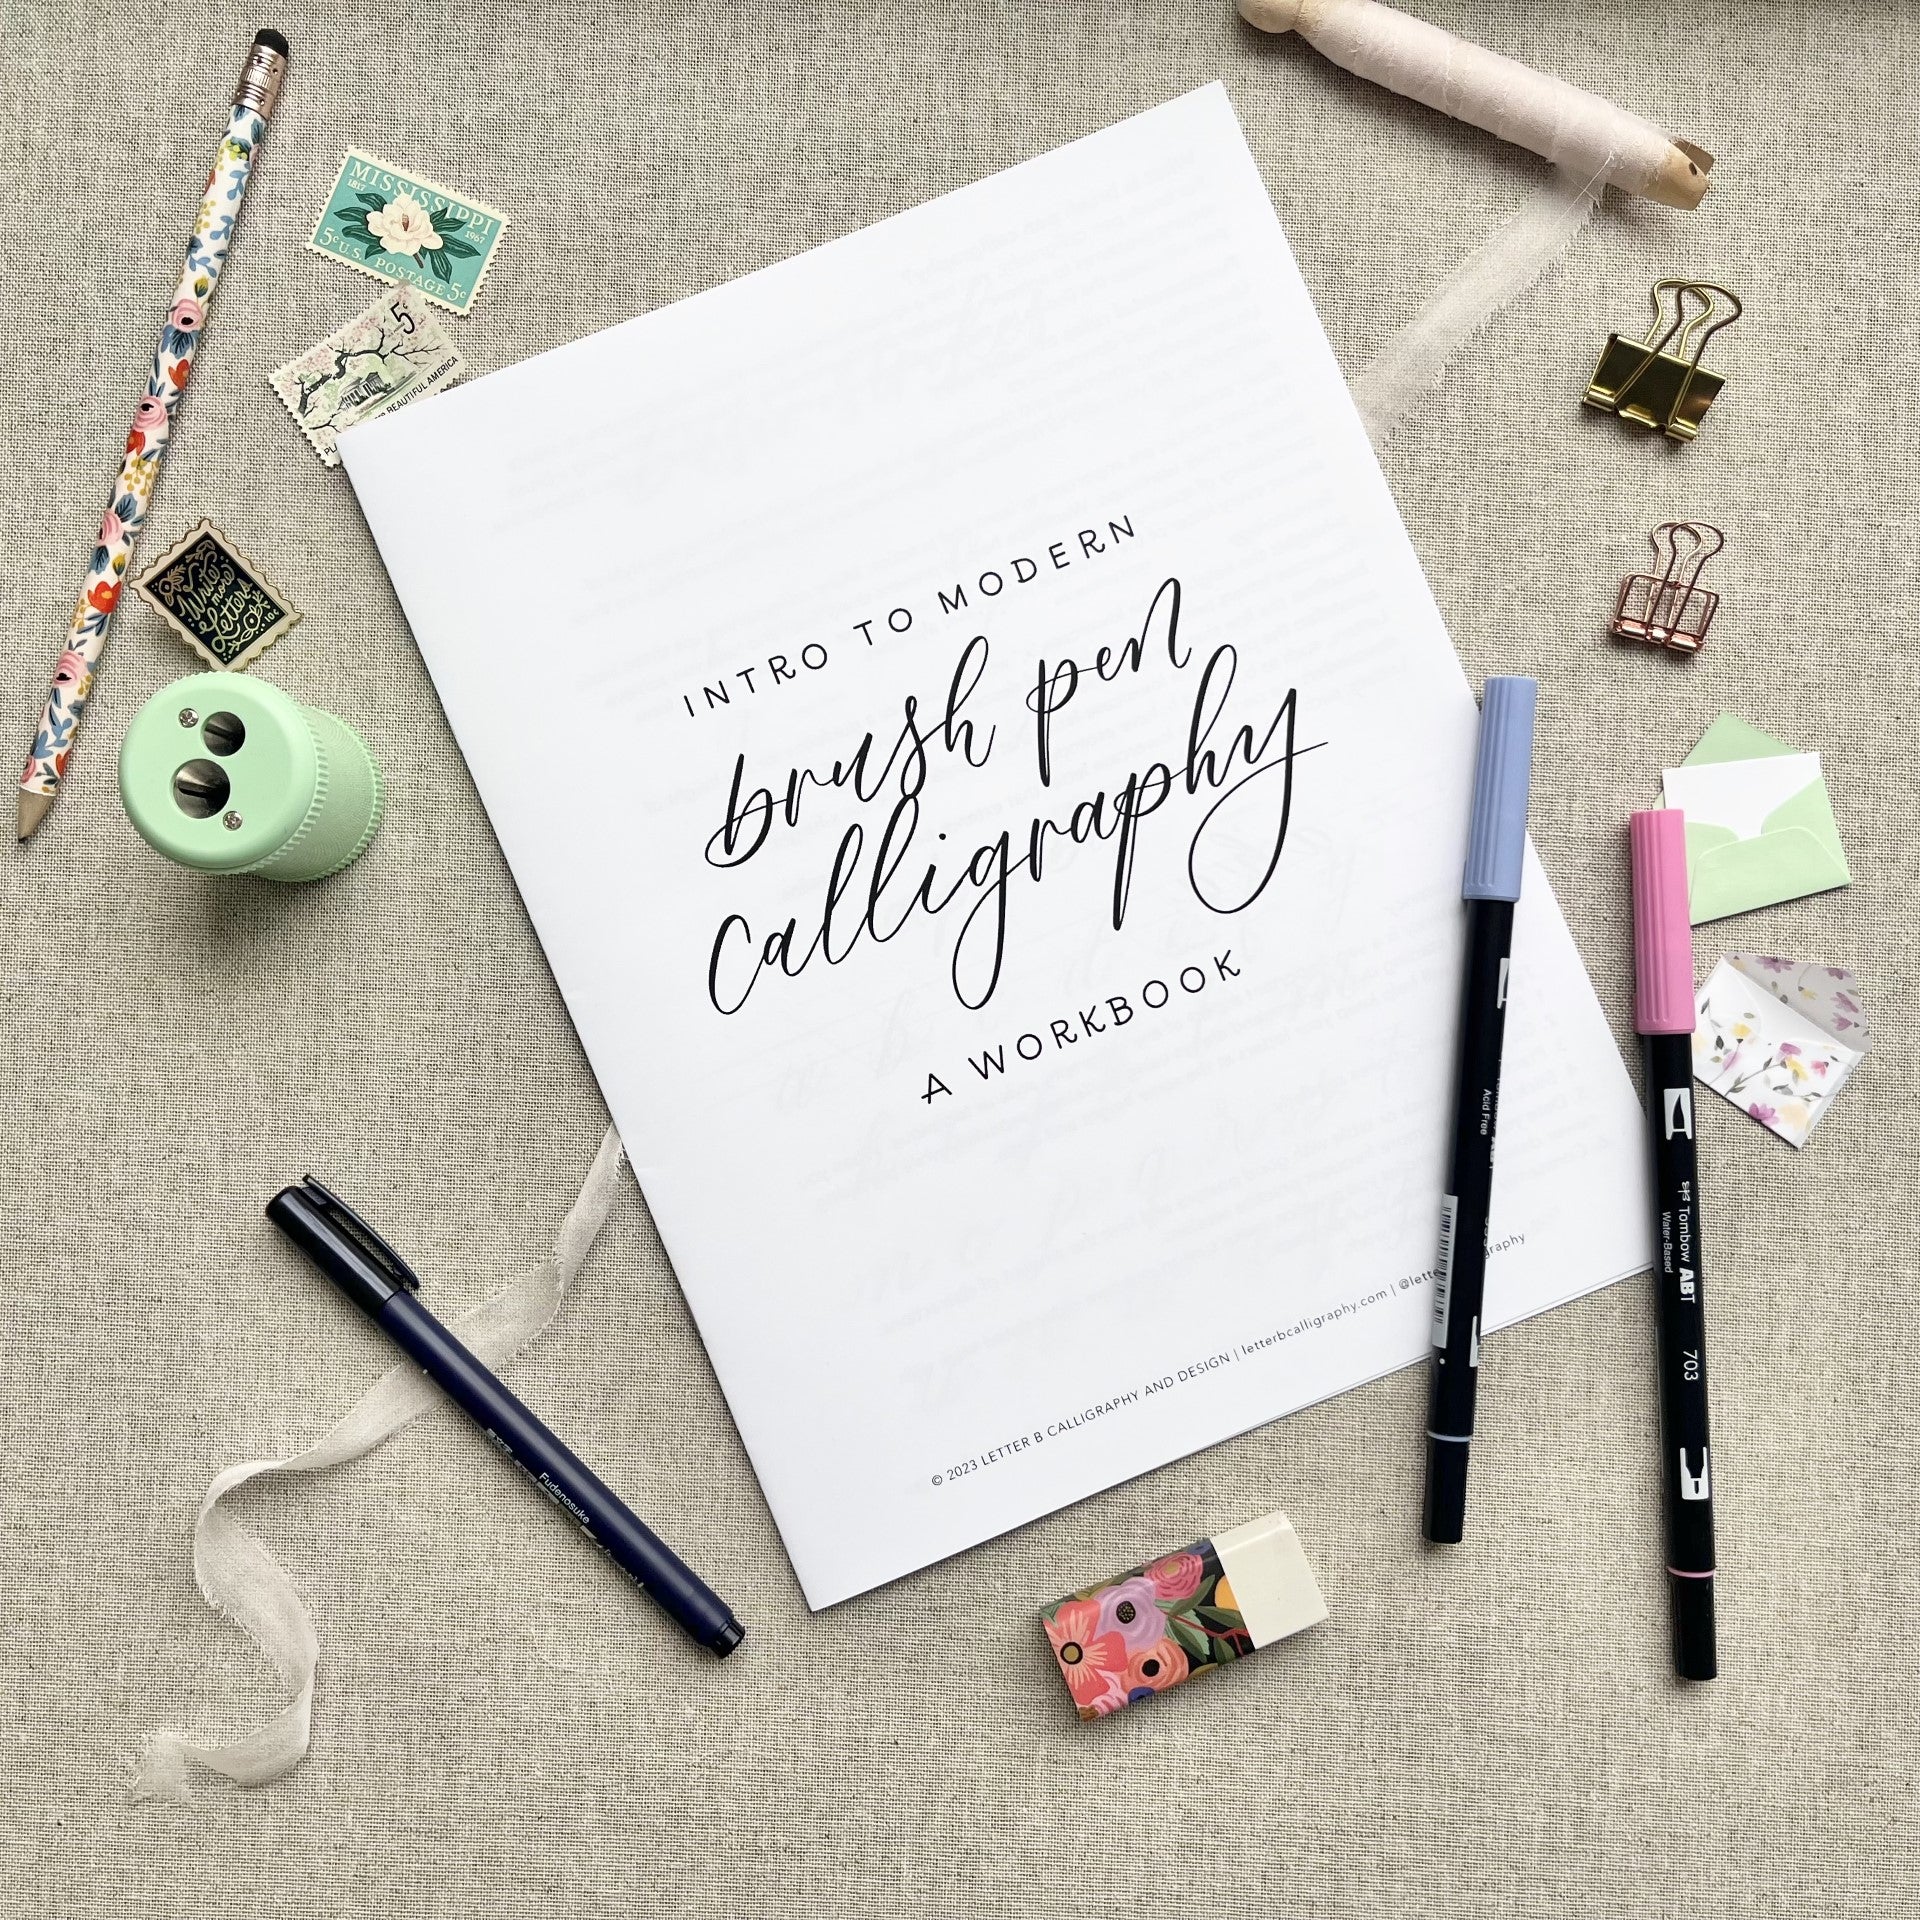 MISSISSIPPI
1817
1967
5c U.S. POSTAGE 5c
5c
BEAUTIFUL AMERICA
Write
more
Letters
10c
INTRO TO MODERN
brush pen
calligraphy
A WORKBOOK
© 2023 LETTER B CALLIGRAPHY AND DESIGN | letterbcalligraphy.com |
Acid Free
Tombow ABT
Water-Based
703
Fudenosuke